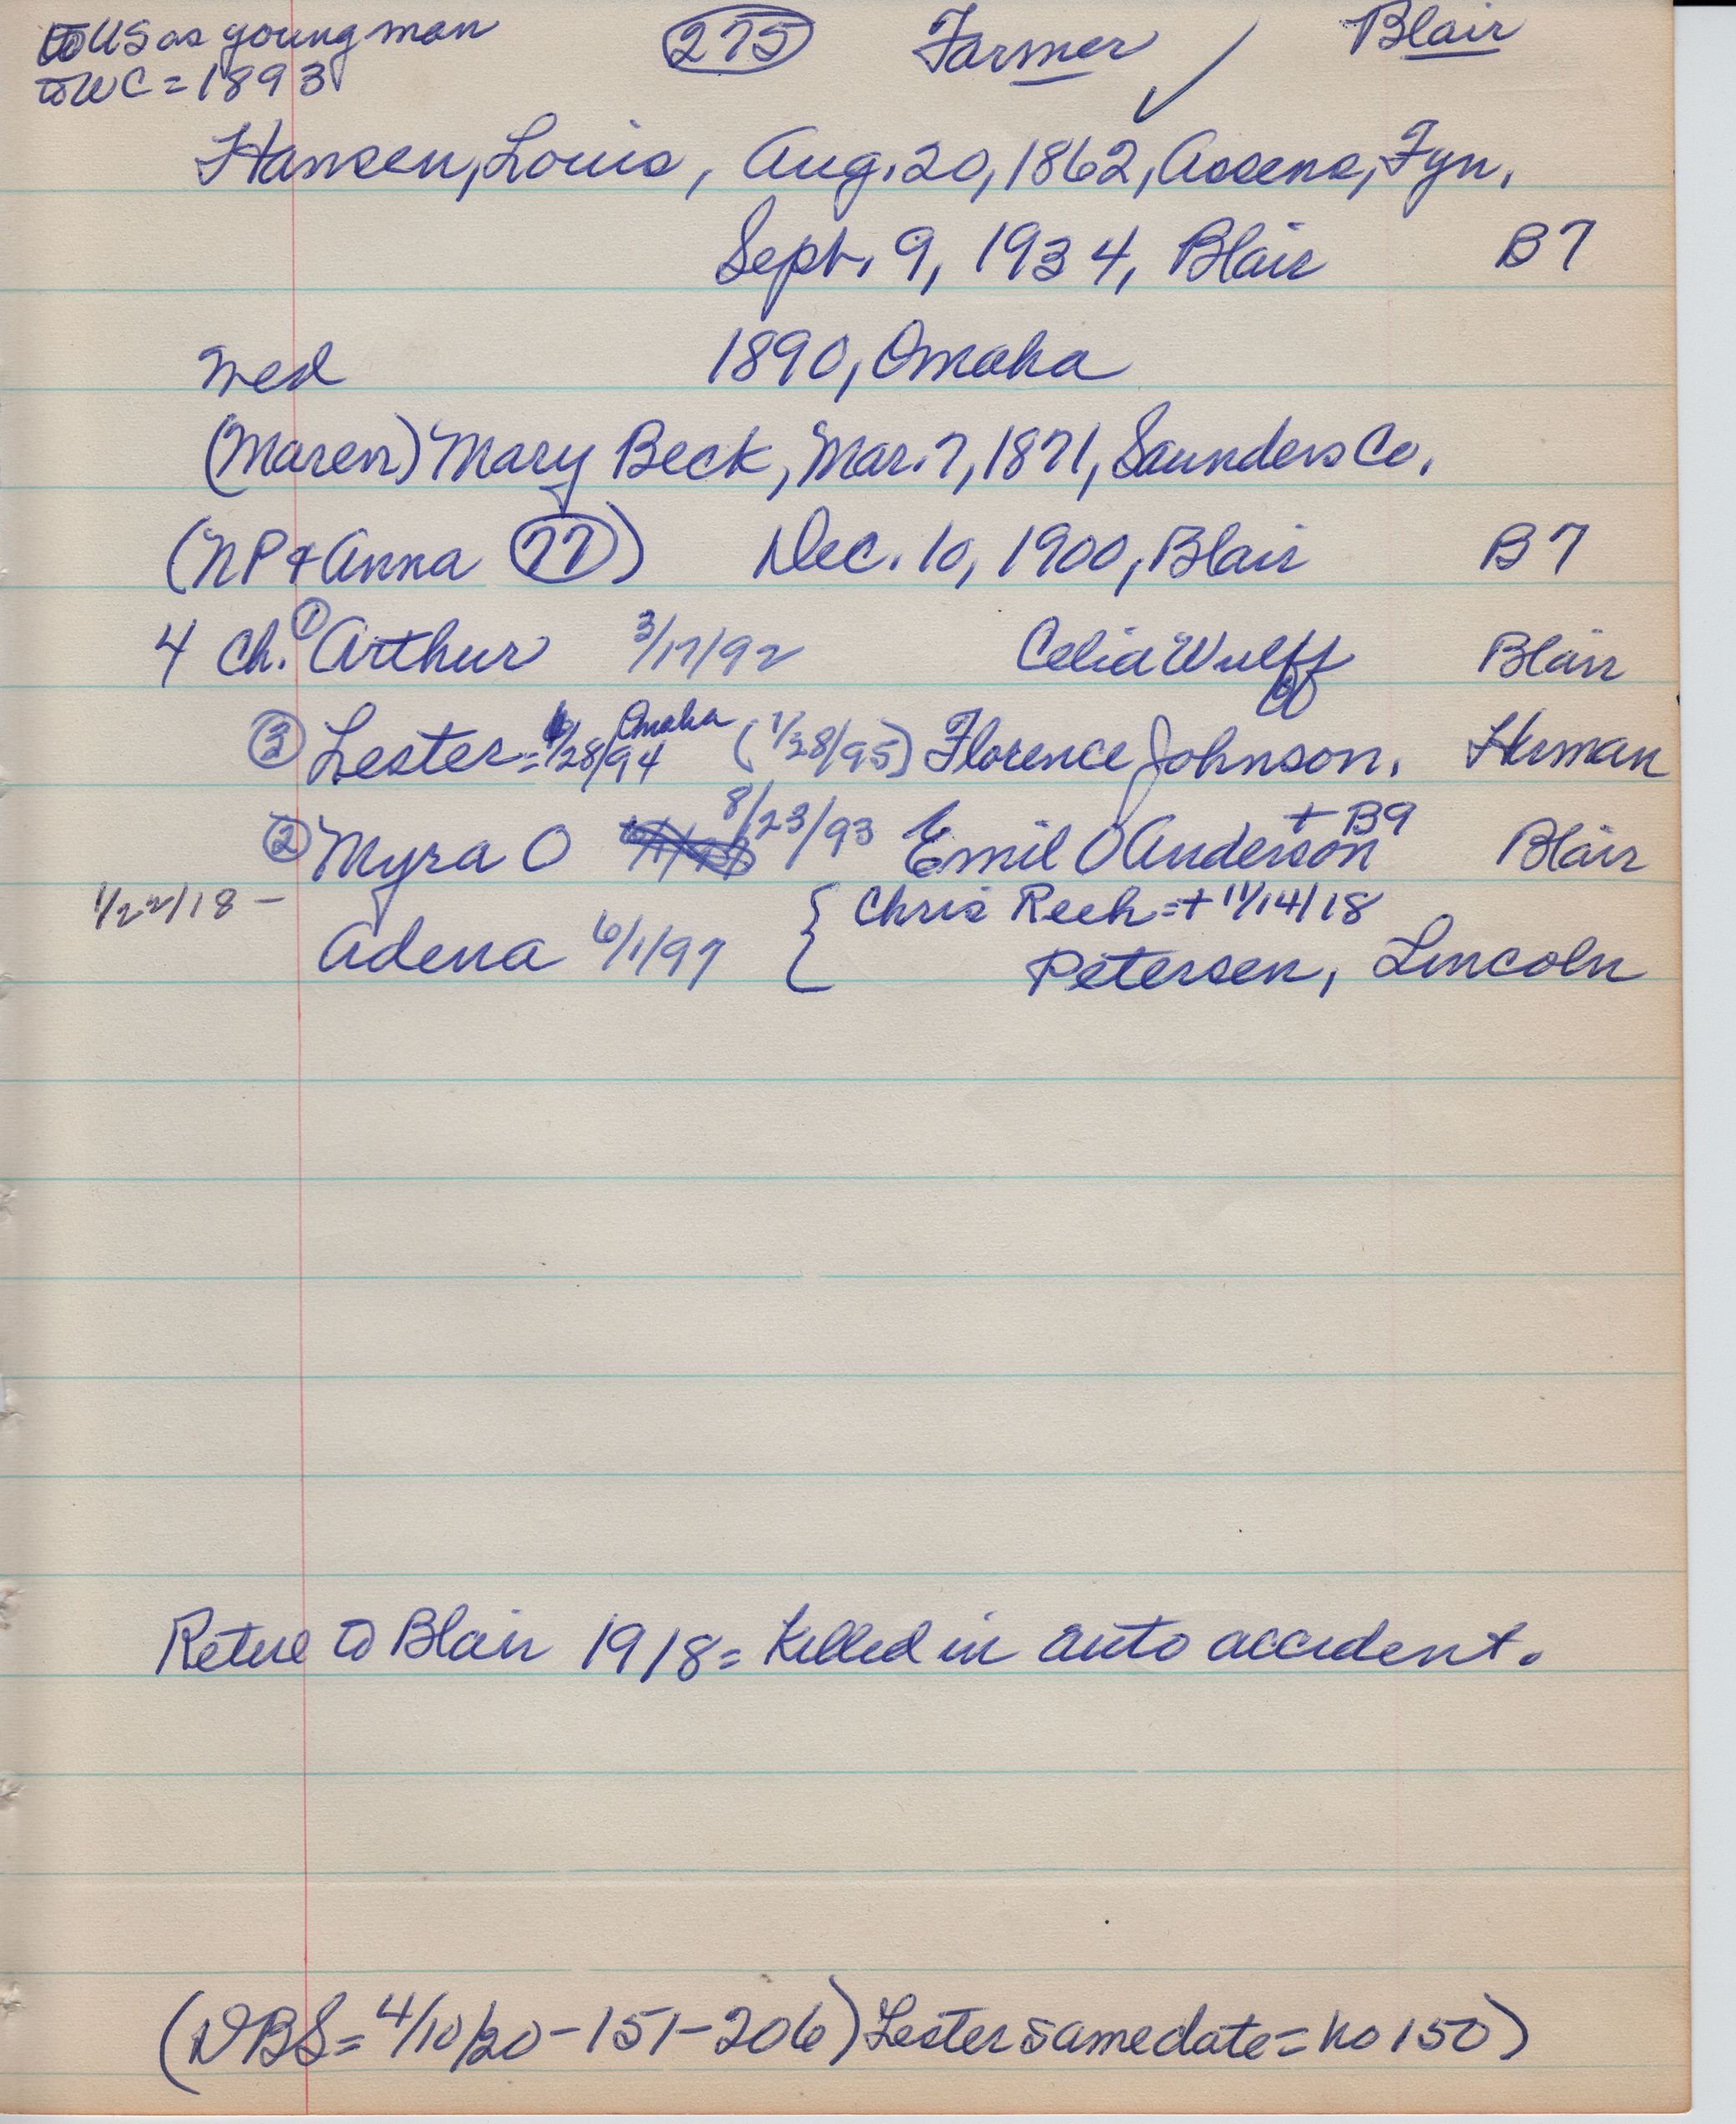 to US as young man (275) Farmer ✓ Blair
to WC = 1893
Hansen, Louis, Aug. 20, 1862, Assens, Fyn.
Sept. 9, 1934, Blair B7
wed 1890, Omaha
(Maren) Mary Beck, Mar. 7, 1871, Saunders Co.
(NP + Anna (77)) Dec. 10, 1900, Blair B7
4 Ch. ① Arthur 3/17/92 Celia Wulff Blair
③ Lester = /28/94 Omaha (1/28/95) Florence Johnson, Herman
② Myra O 8/23/93 Emil O Anderson + B9 Blair
1/22/18 - { Chris Reeh = + 11/14/18
Adena 6/1/97 Petersen, Lincoln
Retire to Blair 1918 = Killed in auto accident.
(DBS = 4/10/20 - 151 - 206) Lester same date = no 150)